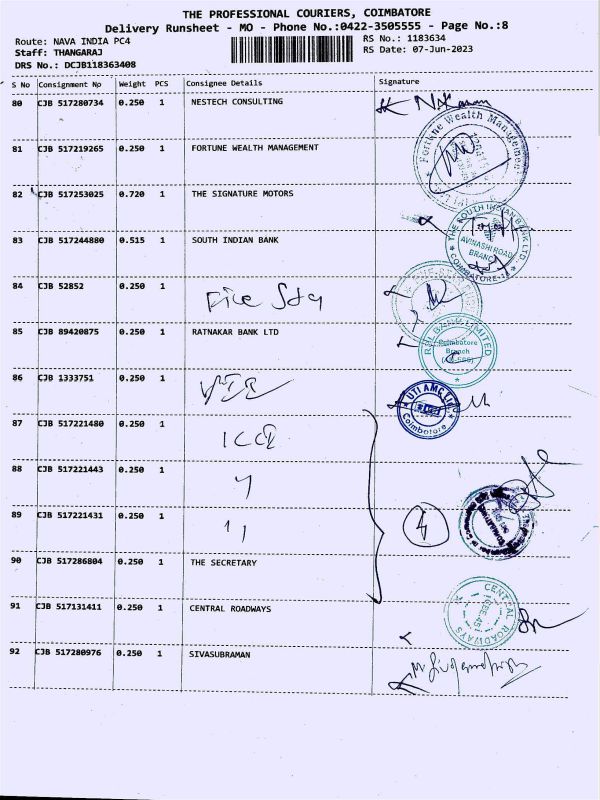 THE PROFESSIONAL COURIERS, COIMBATORE
Delivery Runsheet - MO - Phone No.:0422-3505555 - Page No.:8
Route: NAVA INDIA PC4 RS No.: 1183634
Staff: THANGARAJ RS Date: 07-Jun-2023
DRS No.: DCJB118363408
S No Consignment Np Weight PCS Consignee Details Signature
80 CJB 517280734 0.250 1 NESTECH CONSULTING
81 CJB 517219265 0.250 1 FORTUNE WEALTH MANAGEMENT
Fortune Wealth Management
82 CJB 517253025 0.720 1 THE SIGNATURE MOTORS
83 CJB 517244880 0.515 1 SOUTH INDIAN BANK
THE SOUTH INDIAN BANK LTD.
AVINASHI ROAD
BRANCH
COIMBATORE-
84 CJB 52852 0.250 1
85 CJB 89420875 0.250 1 RATNAKAR BANK LTD
RBL BANK LIMITED
Coimbatore
Branch
86 CJB 1333751 0.250 1
UTI AMC LTD.
Coimbatore
87 CJB 517221480 0.250 1
88 CJB 517221443 0.250 1 "
89 CJB 517221431 0.250 1 "
4
90 CJB 517286804 0.250 1 THE SECRETARY
91 CJB 517131411 0.250 1 CENTRAL ROADWAYS
CENTRAL ROADWAYS
92 CJB 517280976 0.250 1 SIVASUBRAMAN